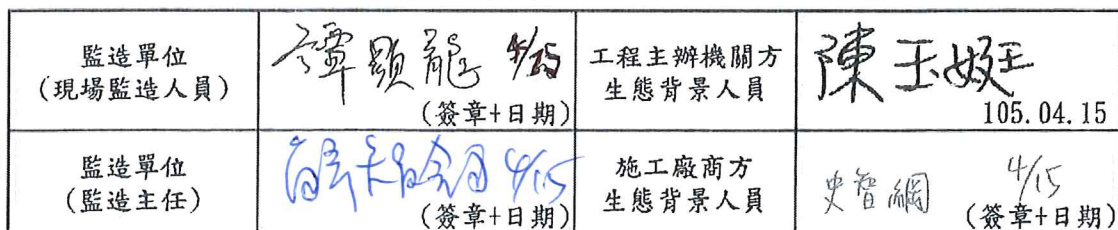 監造單位
(現場監造人員)
譚顯龍 4/15
(簽章+日期)
工程主辦機關方
生態背景人員
陳玉
105.04.15
監造單位
(監造主任)
4/15
(簽章+日期)
施工廠商方
生態背景人員
史智綱 4/15
(簽章+日期)